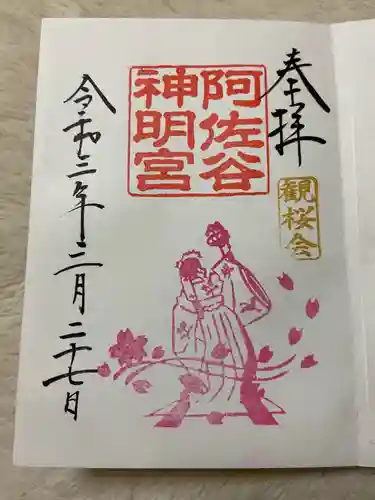 奉拝
観桜会
阿佐谷
神明宮
令和三年三月二十七日